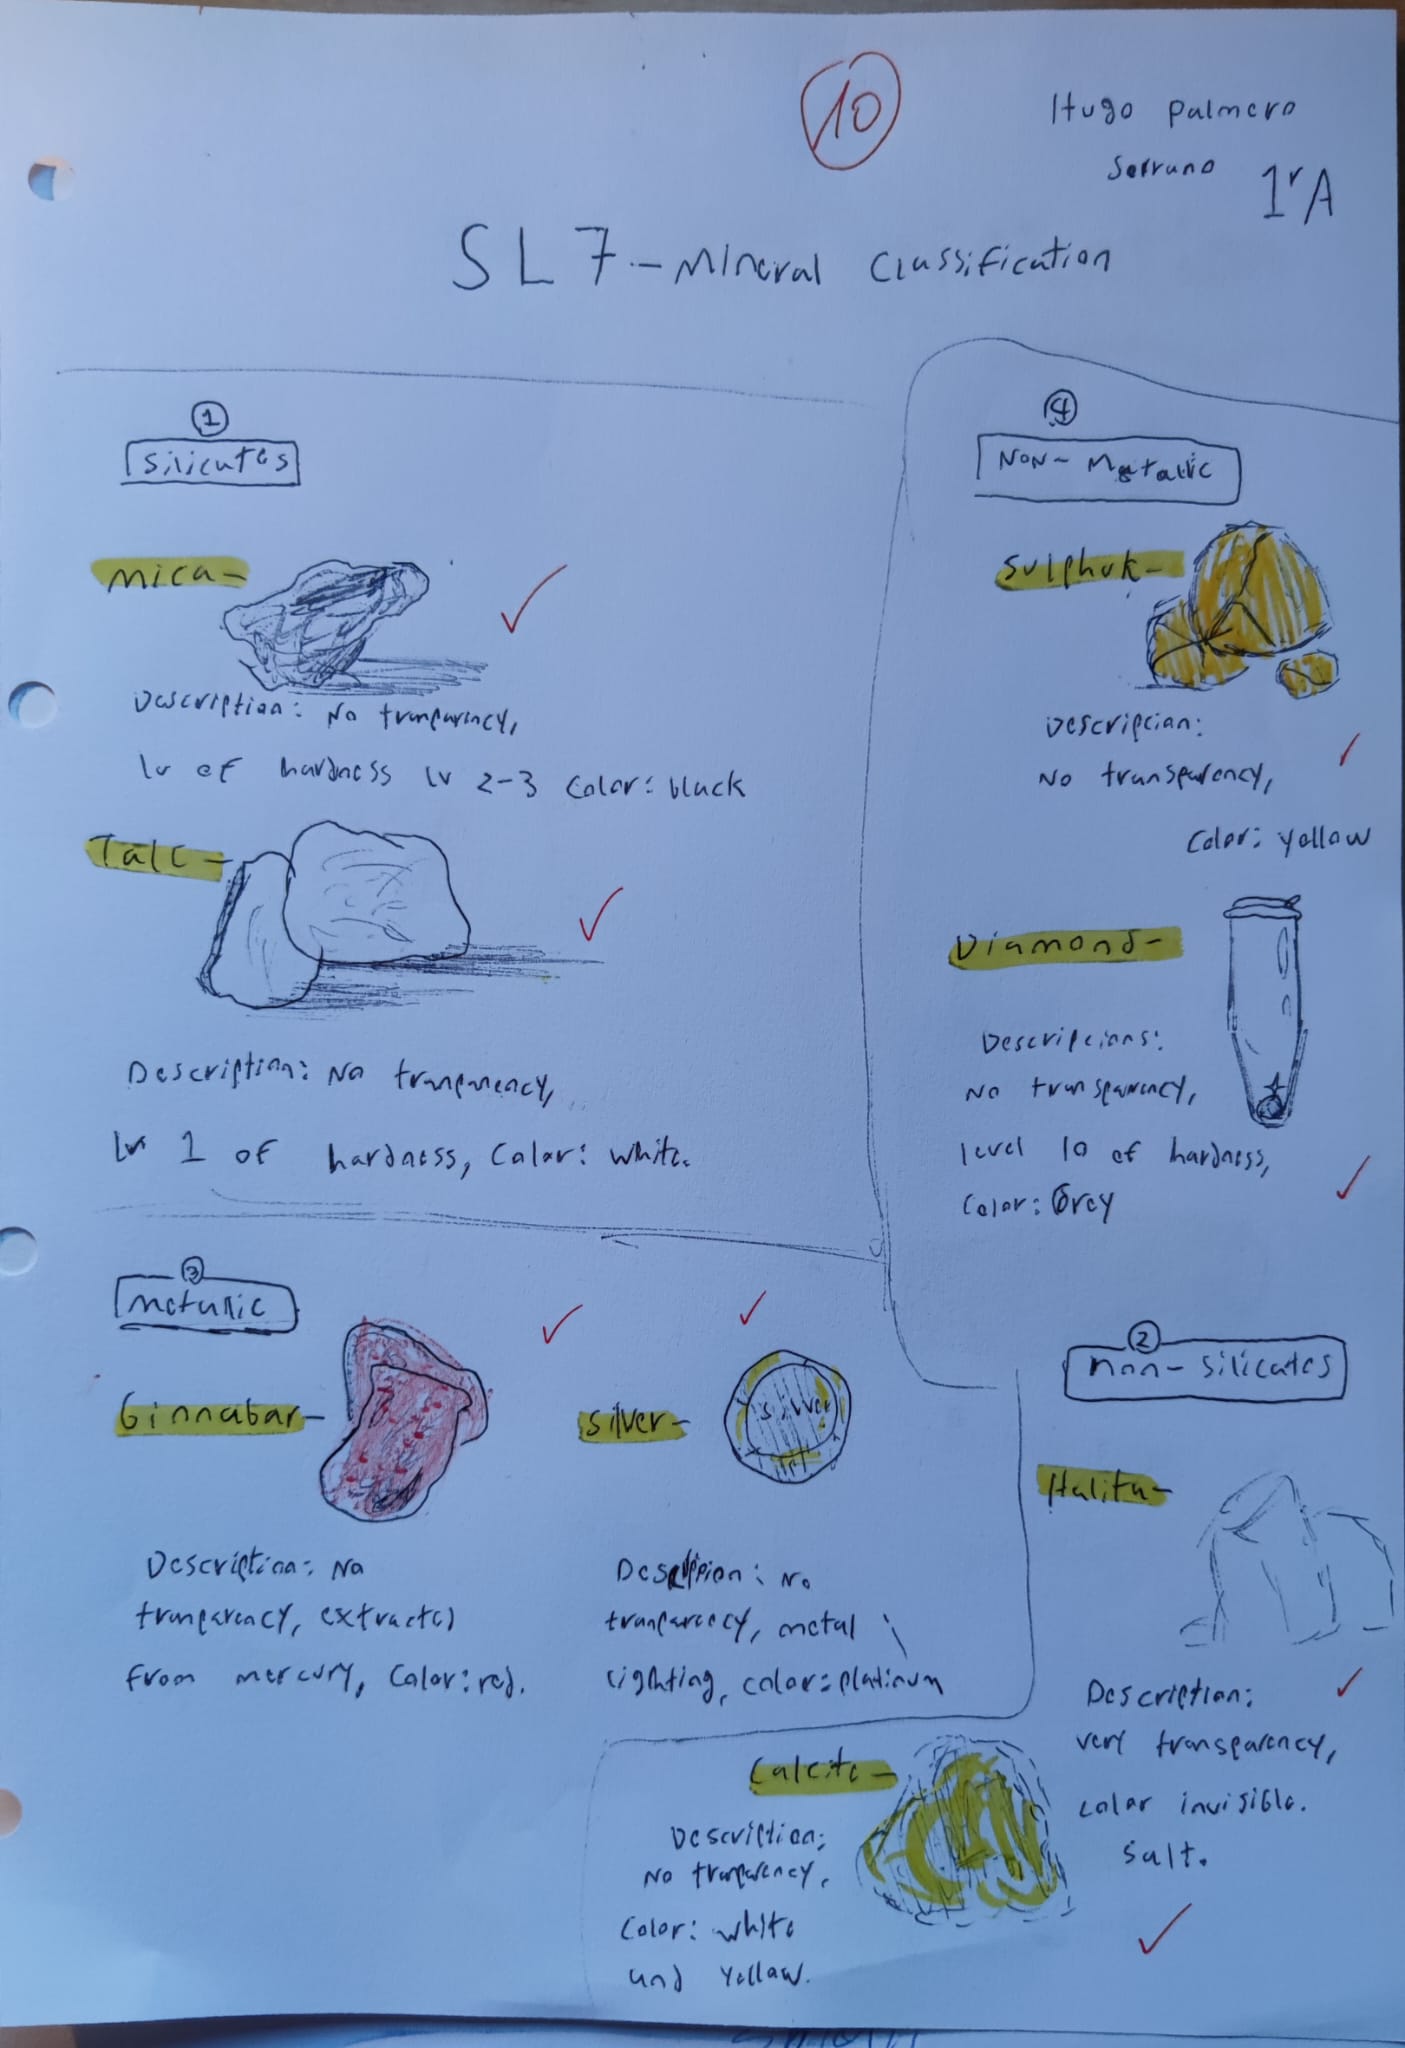 10
Hugo Palmero
Serrano 1ºA
SL7.-Mineral Classification
1
Silicates
Mica-
Description: No tranparency,
lv of hardness lv 2-3 Color: black
Talc-
Description: No tranparency,
lv 1 of hardness, Color: white.
3
Metallic
Cinnabar-
Description: No
tranparency, extracted
from mercury, Color: red.
Silver-
No
tranparency, metal
lighting, color: platinum
4
Non-Metallic
Sulphur-
Descripcian:
No transparency,
Color: yellow
Diamond-
Descripcians:
No transparency,
level 10 of hardness,
Color: Grey
2
non-silicates
Halita-
Description:
very transparency,
color invisible.
salt.
Calcite-
Description:
No tranparency,
Color: white
and Yellow.